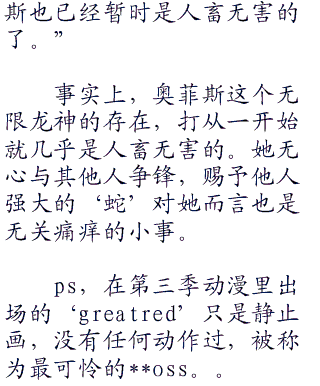 斯也已经暂时是人畜无害的
了。”
事实上，奥菲斯这个无
限龙神的存在，打从一开始
就几乎是人畜无害的。她无
心与其他人争锋，赐予他人
强大的‘蛇’对她而言也是
无关痛痒的小事。
ps，在第三季动漫里出
场的‘greatred’只是静止
画，没有任何动作过，被称
为最可怜的**oss。。